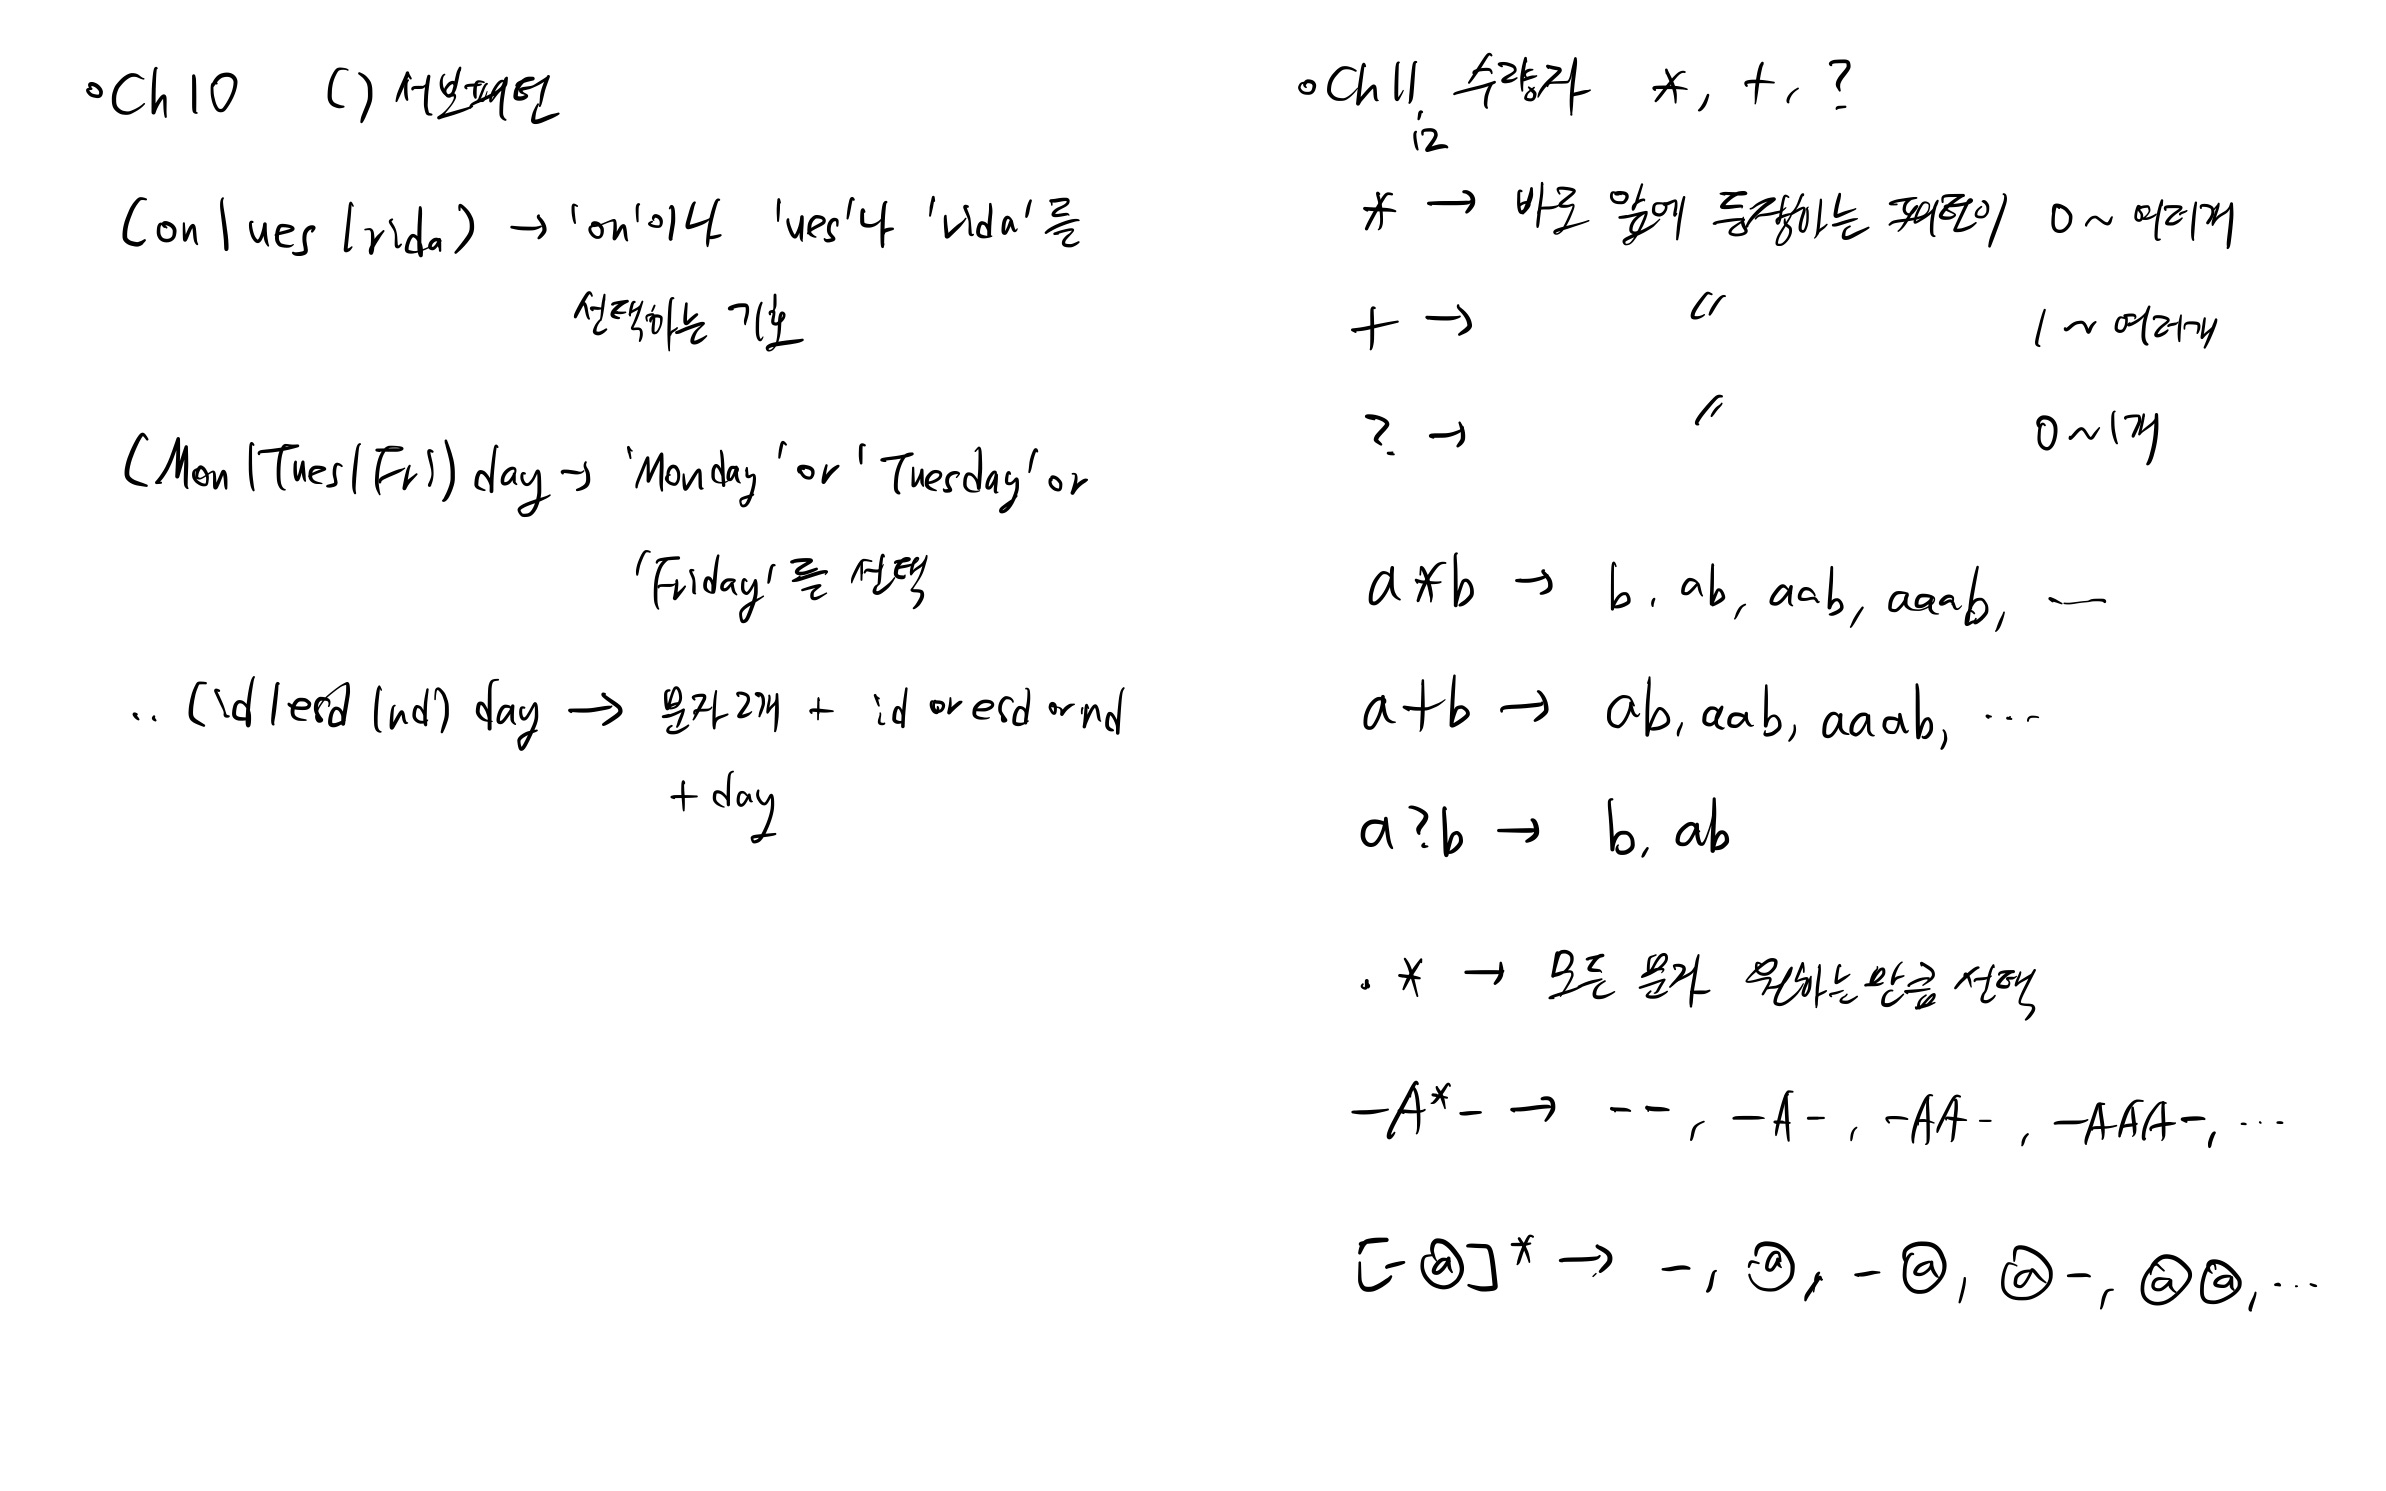 ◦Ch10 () 서브패턴
(on|ues|rida) → 'on'이나 'ues'나 'rida'를
선택하는 기호
(Mon|Tues|Fri)day → 'Monday' or 'Tuesday' or
'Friday'를 선택
..(id|esd|nd)day → 문자 2개 + id or esd or nd
+ day
◦Ch11, 수량자 *, +, ?
12
* → 바로 앞에 등장하는 패턴이 0~여러개
+ → 〃 1~여러개
? → 〃 0~1개
a*b → b, ab, aab, aaab, ―
a+b → ab, aab, aaab, ...
a?b → b, ab
.* → 모든 문자 원하는만큼 선택
-A*- → --, -A-, -AA-, -AAA-, ...
[-@]* → -, @, -@, @-, @@, ...